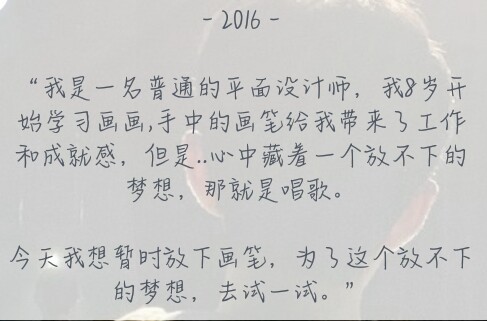 - 2016 -
“我是一名普通的平面设计师，我8岁开
始学习画画,手中的画笔给我带来了工作
和成就感，但是..心中藏着一个放不下的
梦想，那就是唱歌。
今天我想暂时放下画笔，为了这个放不下
的梦想，去试一试。”